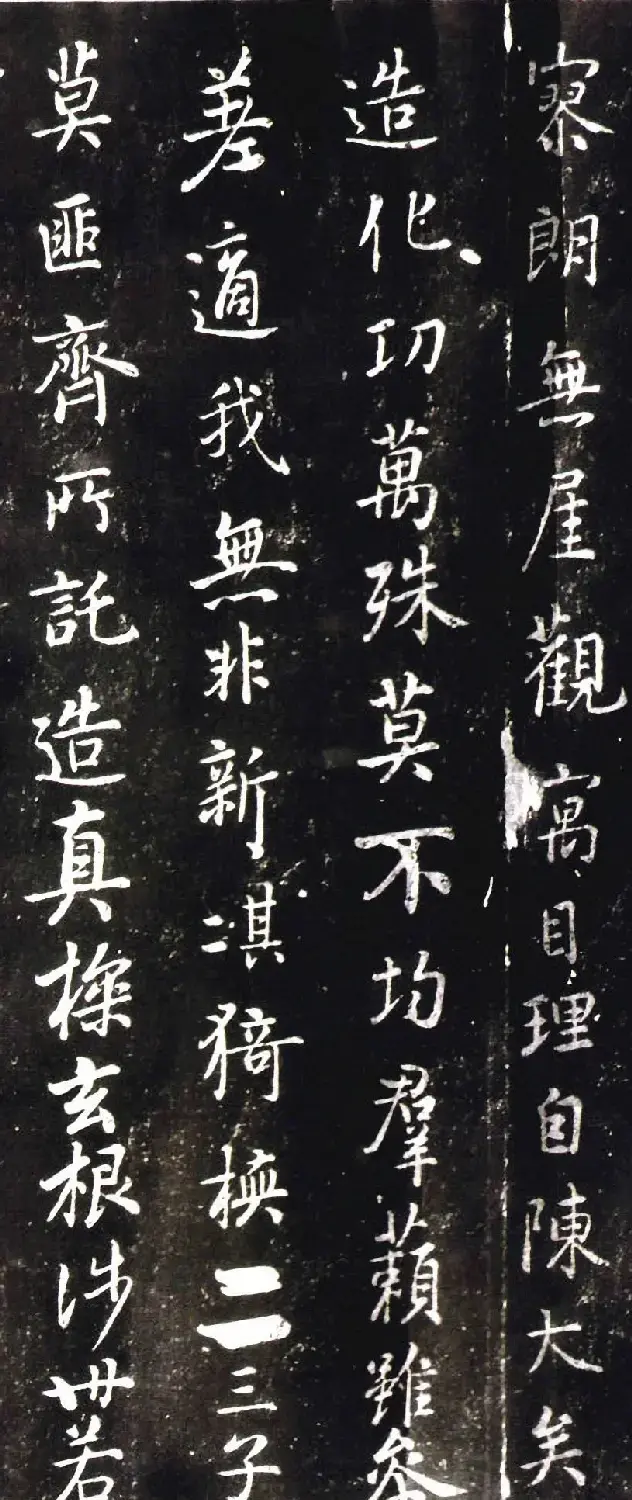 寥朗無厓觀寓目理自陳大矣
造化功萬殊莫不均羣藾雖參
差適我無非新其二猗二三子
莫匪齊所託造真探玄根涉世若